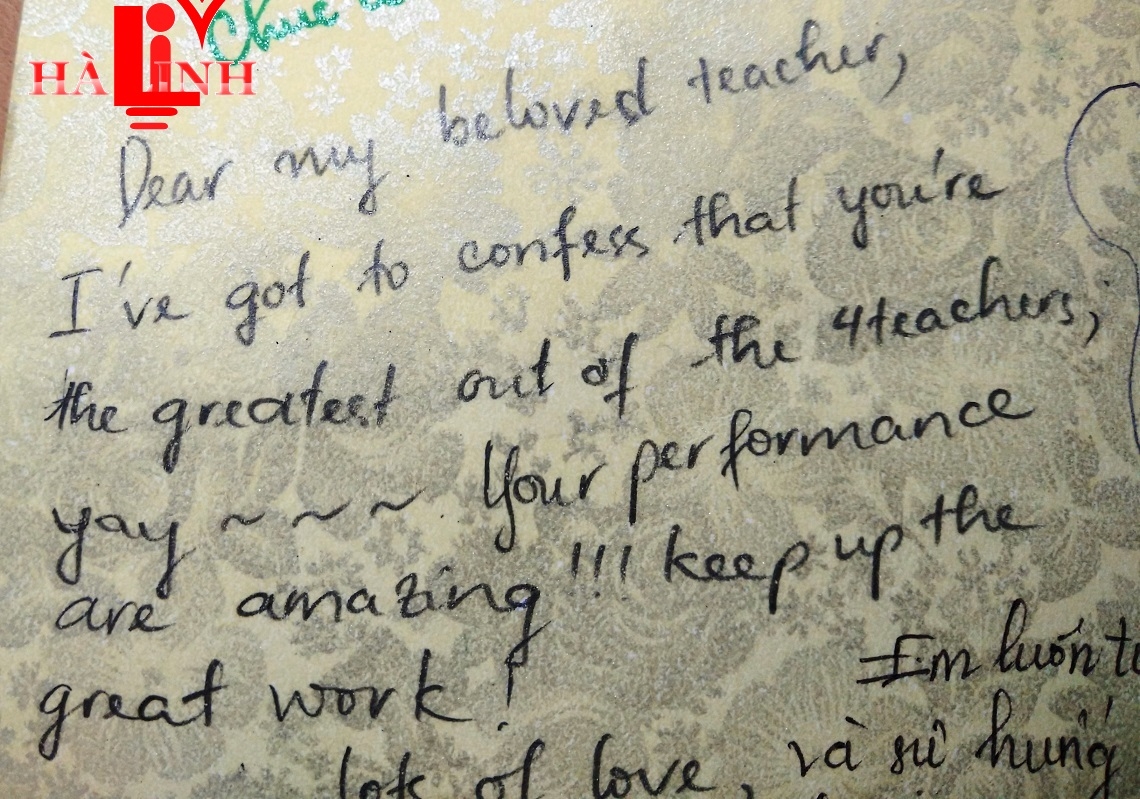 HÀ LINH
Chúc
Dear my beloved teacher,
I've got to confess that you're
the greatest out of the 4 teachers;
yay ~ ~ ~ Your performance
are amazing !!! keep up the
great work !
lots of love,
Em luôn
và sự hứng